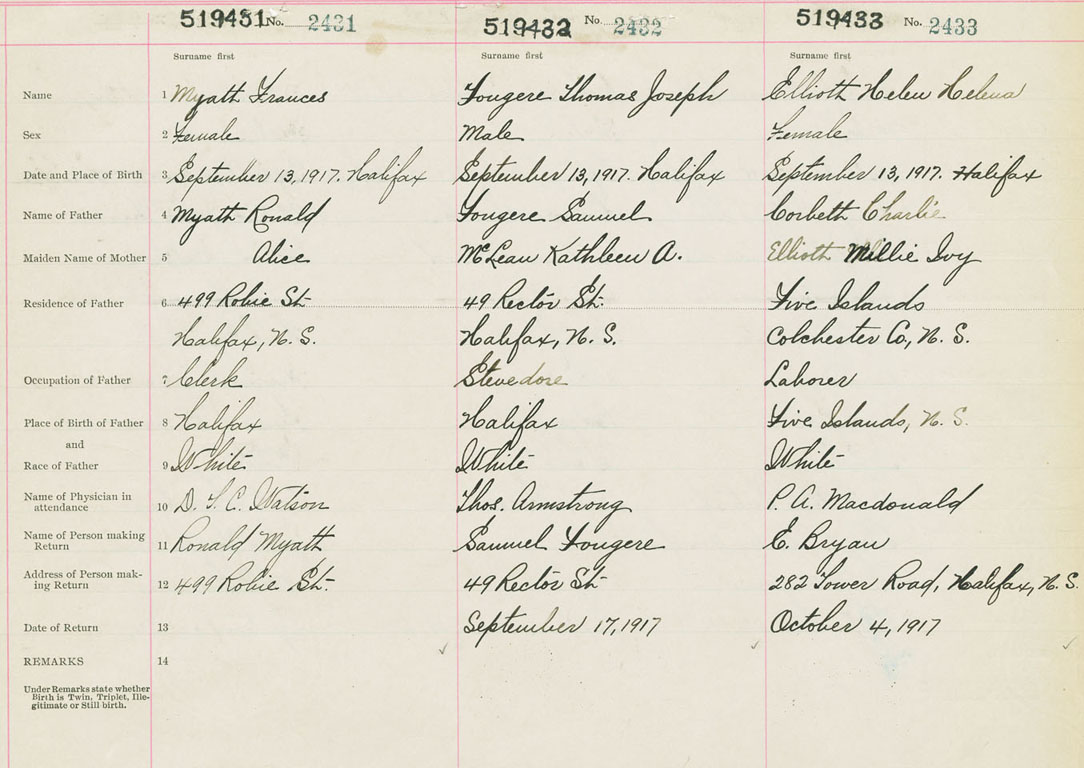 519431 No. 2431 519432 No. 2432 519433 No. 2433
Surname first Surname first Surname first
Name 1 Myath Frances Fougere Thomas Joseph Ellioth Helen Helena
Sex 2 Female Male Female
Date and Place of Birth 3 September 13, 1917. Halifax September 13, 1917. Halifax September 13, 1917. Halifax
Name of Father 4 Myath Ronald Fougere Samuel Corbeth Charlie
Maiden Name of Mother 5 Alice McLean Kathleen A. Ellioth Millie Ivy
Residence of Father 6 499 Robie St. 49 Rector St. Five Islands
Halifax, N. S. Halifax, N. S. Colchester Co., N. S.
Occupation of Father 7 Clerk Stevedore Laborer
Place of Birth of Father 8 Halifax Halifax Five Islands, N. S.
and
Race of Father 9 White White White
Name of Physician in
attendance 10 D. T. C. Watson Thos. Armstrong P. A. Macdonald
Name of Person making
Return 11 Ronald Myath Samuel Fougere E. Bryan
Address of Person mak-
ing Return 12 499 Robie St. 49 Rector St. 282 Tower Road, Halifax, N. S.
Date of Return 13 September 17, 1917 October 4, 1917
REMARKS 14
Under Remarks state whether
Birth is Twin, Triplet, Ille-
gitimate or Still birth.